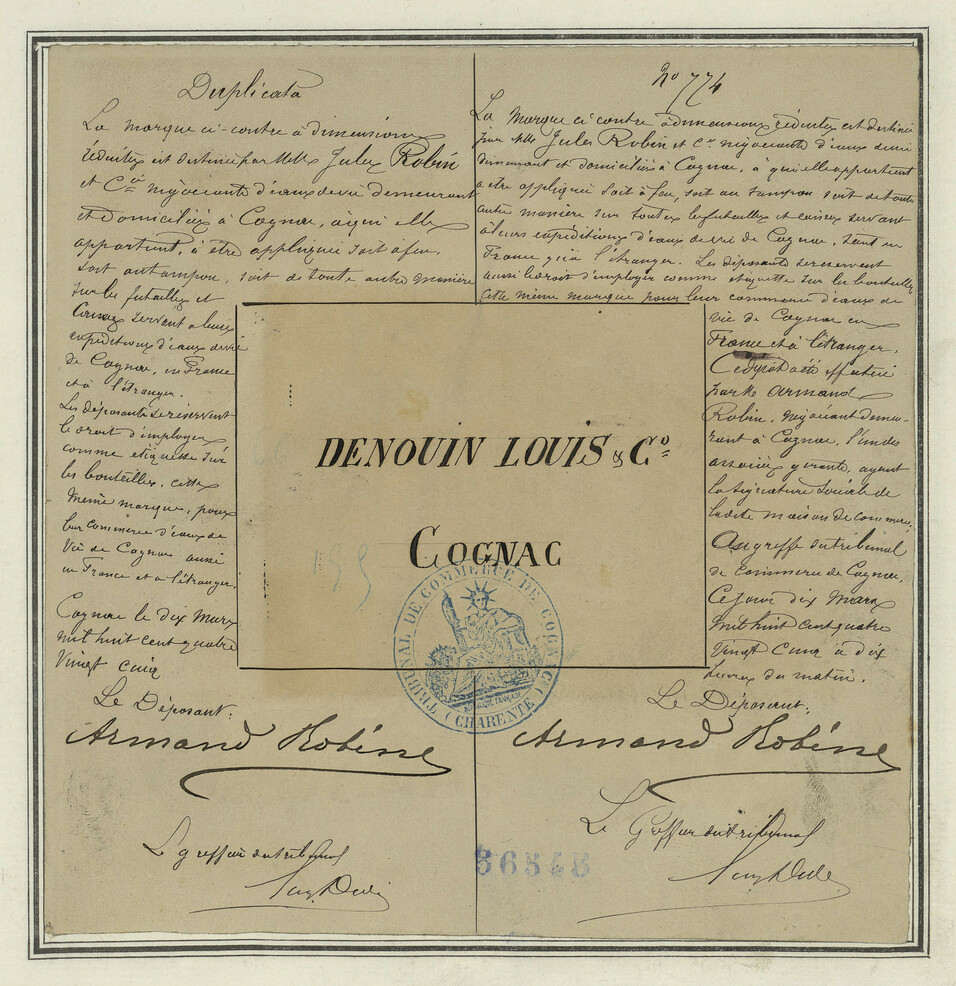 Duplicata
La marque ci-contre à dimensions
réduites est destinée par MM. Jules Robin
et Cie négociants d'eaux de vie demeurant
et domiciliés à Cognac, à qui elle
appartient, à être appliquée soit à feu,
soit au tampon, soit de toute autre manière
sur les futailles et
caisses servant à leurs
expéditions d'eaux de vie
de Cognac, en France
et à l'étranger.
Les déposants se réservent
le droit d'employer
comme etiquette sur
les bouteilles, cette
même marque, pour
leur commerce d'eaux de
vie de Cognac aussi
en France et à l'étranger.
Cognac le dix Mars
mil huit cent quatre
vingt cinq
Le Déposant:
Armand Robin
Le greffier du tribunal
No 774
La Marque ci contre à dimensions réduites est destinée
par MM. Jules Robin et Cie négociants d'eaux de vie
demeurant et domiciliés à Cognac, à qui elle appartient
a être appliquée soit à feu, soit au tampon soit de toute
autre manière sur toutes les futailles et caisses servant
à leurs expéditions d'eaux de vie de Cognac, tant en
France qu'à l'étranger. Les déposants se réservent
aussi le droit d'employer comme étiquette sur les bouteilles
cette même marque pour leur commerce d'eaux de
vie de Cognac en
France et à l'étranger.
Ce dépôt a été effectué
par M. Armand
Robin, négociant demeu-
rant à Cognac, l'un des
associés gérants, ayant
la signature sociale de
ladite maison de commerce,
Au greffe du tribunal
de commerce de Cognac,
Ce jour dix Mars
mil huit cent quatre
vingt cinq à dix
heures du matin.
Le Déposant:
Armand Robin
Le Greffier du tribunal
DENOUIN LOUIS & Co
COGNAC
TRIBUNAL DE COMMERCE DE COGNAC
(CHARENTE)
RÉPUBLIQUE FRANÇAISE
36545